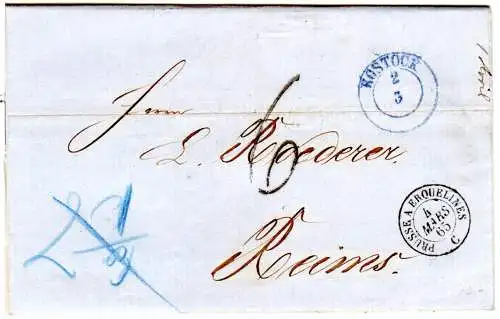 ROSTOCK
2
3
Herrn
L. Roederer.
Reims.
6
PRUSSE A ERQUELINES
4
MARS
65
C